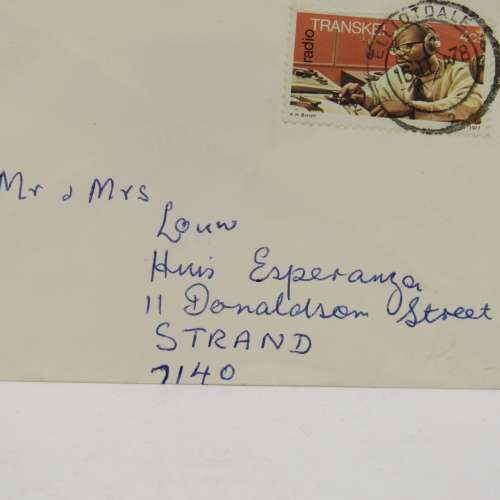 TRANSKEI
radio
ELLIOTDALE
78
1977
Mr & Mrs
Louw
Huis Esperanza
11 Donaldson Street
STRAND
7140